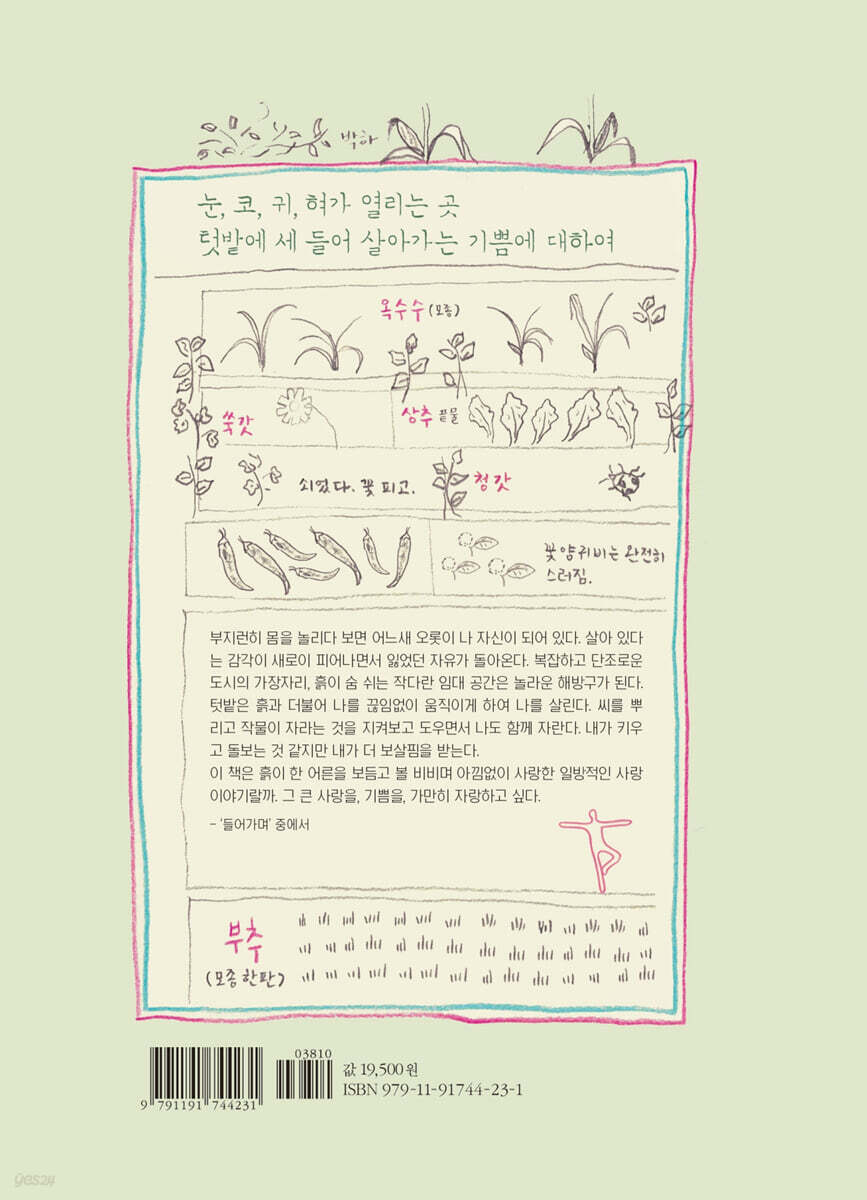 박하
눈, 코, 귀, 혀가 열리는 곳
텃밭에 세 들어 살아가는 기쁨에 대하여
옥수수 (모종)
쑥갓
상추 끝물
쇠었다. 꽃 피고.
청갓
꽃양귀비는 완전히
스러짐.
부지런히 몸을 놀리다 보면 어느새 오롯이 나 자신이 되어 있다. 살아 있다
는 감각이 새로이 피어나면서 잃었던 자유가 돌아온다. 복잡하고 단조로운
도시의 가장자리, 흙이 숨 쉬는 작다란 임대 공간은 놀라운 해방구가 된다.
텃밭은 흙과 더불어 나를 끊임없이 움직이게 하여 나를 살린다. 씨를 뿌
리고 작물이 자라는 것을 지켜보고 도우면서 나도 함께 자란다. 내가 키우
고 돌보는 것 같지만 내가 더 보살핌을 받는다.
이 책은 흙이 한 어른을 보듬고 볼 비비며 아낌없이 사랑한 일방적인 사랑
이야기랄까. 그 큰 사랑을, 기쁨을, 가만히 자랑하고 싶다.
- '들어가며' 중에서
부추
(모종 한 판)
03810
값 19,500원
ISBN 979-11-91744-23-1
9 791191 744231
yes24